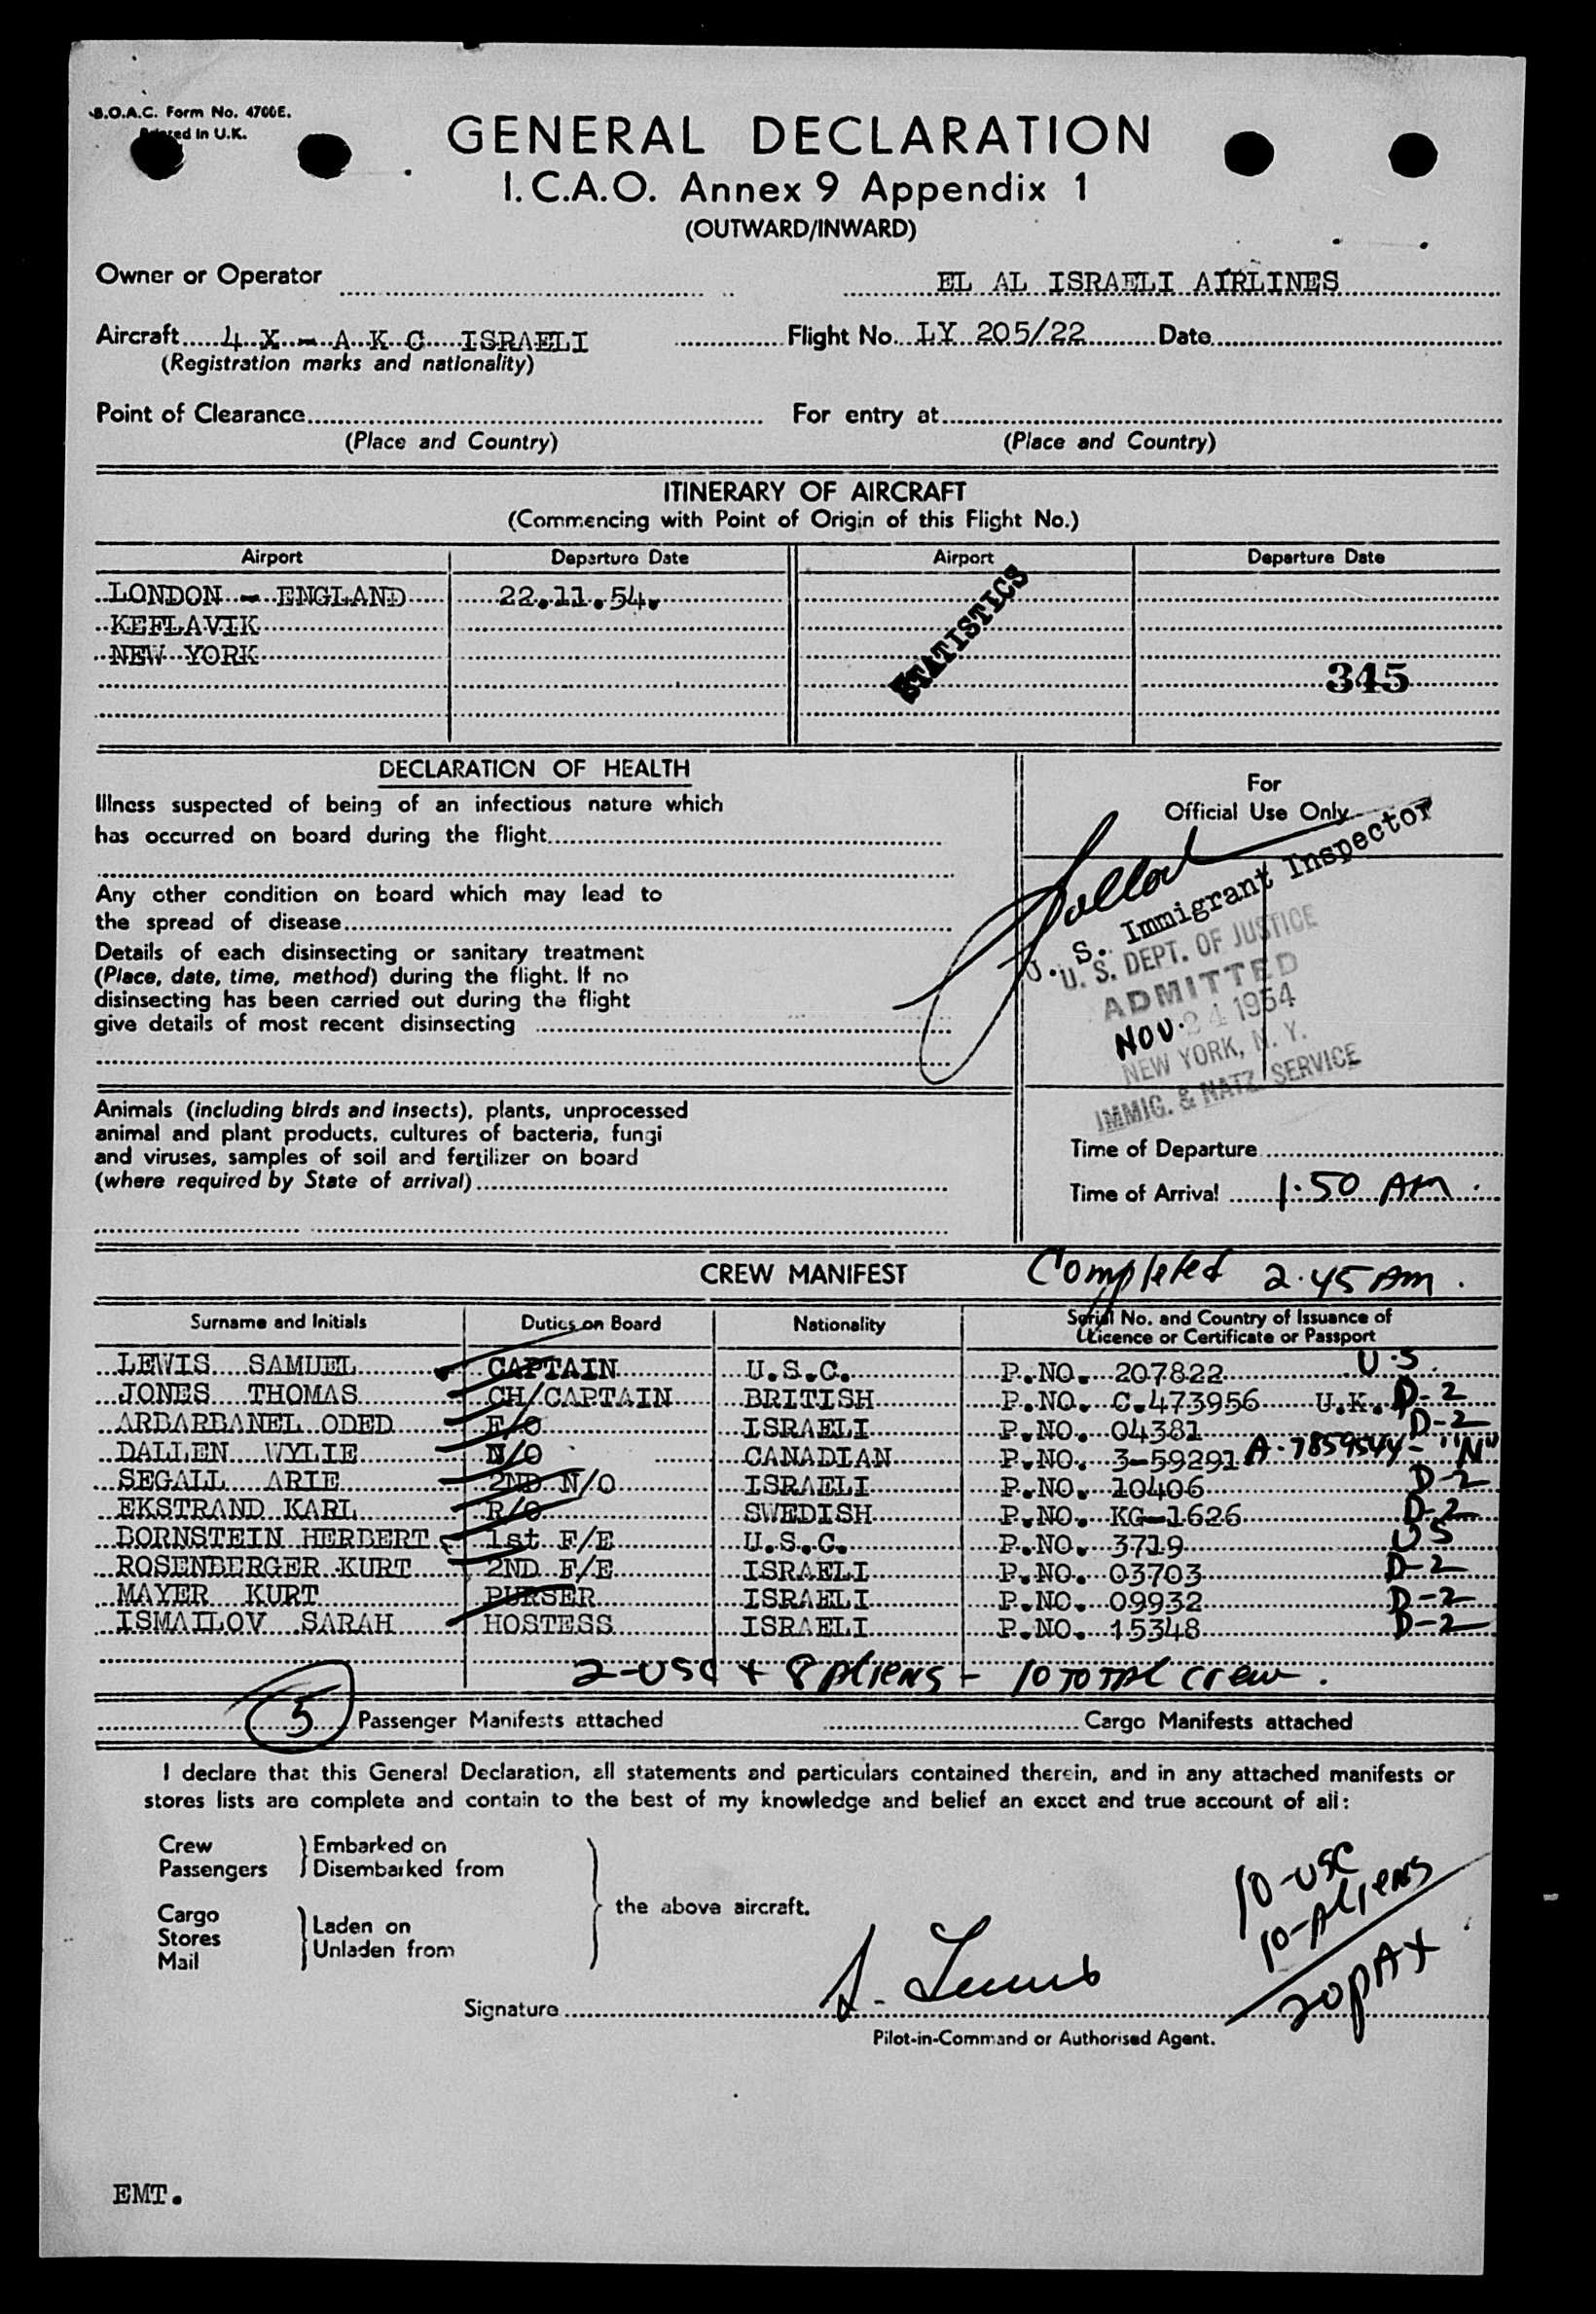 B.O.A.C. Form No. 4700E.
Printed in U.K.
GENERAL DECLARATION
I.C.A.O. Annex 9 Appendix 1
(OUTWARD/INWARD)
Owner or Operator EL AL ISRAELI AIRLINES
Aircraft 4 X - A K C ISRAELI Flight No. LY 205/22 Date
(Registration marks and nationality)
Point of Clearance For entry at
(Place and Country) (Place and Country)
ITINERARY OF AIRCRAFT
(Commencing with Point of Origin of this Flight No.)
Airport Departure Date Airport Departure Date
LONDON - ENGLAND 22.11.54.
KEFLAVIK
NEW YORK
STATISTICS
345
DECLARATION OF HEALTH
Illness suspected of being of an infectious nature which
has occurred on board during the flight
Any other condition on board which may lead to
the spread of disease
Details of each disinsecting or sanitary treatment
(Place, date, time, method) during the flight. If no
disinsecting has been carried out during the flight
give details of most recent disinsecting
For
Official Use Only
U. S. Immigrant Inspector
U. S. DEPT. OF JUSTICE
ADMITTED
NOV. 24 1954
NEW YORK, N. Y.
IMMIG. & NATZ. SERVICE
Animals (including birds and insects), plants, unprocessed
animal and plant products, cultures of bacteria, fungi
and viruses, samples of soil and fertilizer on board
(where required by State of arrival)
Time of Departure
Time of Arrival 1.50 AM.
CREW MANIFEST Completed 2.45 AM.
Surname and Initials Duties on Board Nationality Serial No. and Country of Issuance of
Licence or Certificate or Passport
LEWIS SAMUEL CAPTAIN U.S.C. P.NO. 207822 U.S.
JONES THOMAS CH/CAPTAIN BRITISH P.NO. C.473956 U.K. D-2
ARBARBANEL ODED F/O ISRAELI P.NO. 04381 D-2
DALLEN WYLIE N/O CANADIAN P.NO. 3-59291 A-7859544-"N"
SEGALL ARIE 2ND N/O ISRAELI P.NO. 10406 D-2
EKSTRAND KARL R/O SWEDISH P.NO. KG-1626 D-2
BORNSTEIN HERBERT 1st F/E U.S.C. P.NO. 3719 US
ROSENBERGER KURT 2ND F/E ISRAELI P.NO. 03703 D-2
MAYER KURT PURSER ISRAELI P.NO. 09932 D-2
ISMAILOV SARAH HOSTESS ISRAELI P.NO. 15348 D-2
2-USC + 8 Aliens - 10 TOTAL crew.
5 Passenger Manifests attached Cargo Manifests attached
I declare that this General Declaration, all statements and particulars contained therein, and in any attached manifests or
stores lists are complete and contain to the best of my knowledge and belief an exact and true account of all:
Crew Embarked on
Passengers Disembarked from
Cargo
Stores Laden on
Mail Unladen from
the above aircraft.
10-USC
10-Aliens
20 PAX
Signature S. Lewis
Pilot-in-Command or Authorised Agent.
EMT.